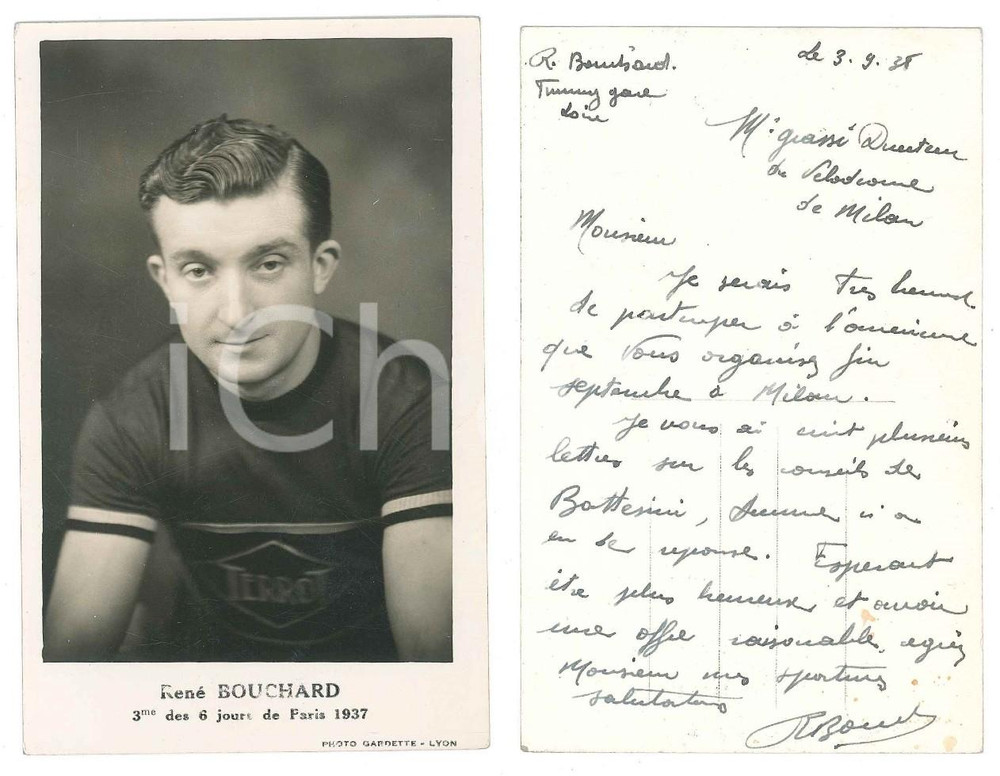 TERROT
iCh
René BOUCHARD
3me des 6 jours de Paris 1937
PHOTO GARDETTE - LYON
R. Bouchard.
gare
Loire
Le 3. 9. 38
Mr grassi Directeur
du Vélodrome
de Milan
Monsieur
Je serais très heureux
de participer à l'américaine
que vous organisez fin
septembre à Milan.
Je vous ai écrit plusieurs
lettres sur les conseils de
Battesini, aucune n'a
eu de réponse. Espérant
être plus heureux et avoir
une offre raisonnable, agréez
Monsieur mes sportives
salutations
RBouchard